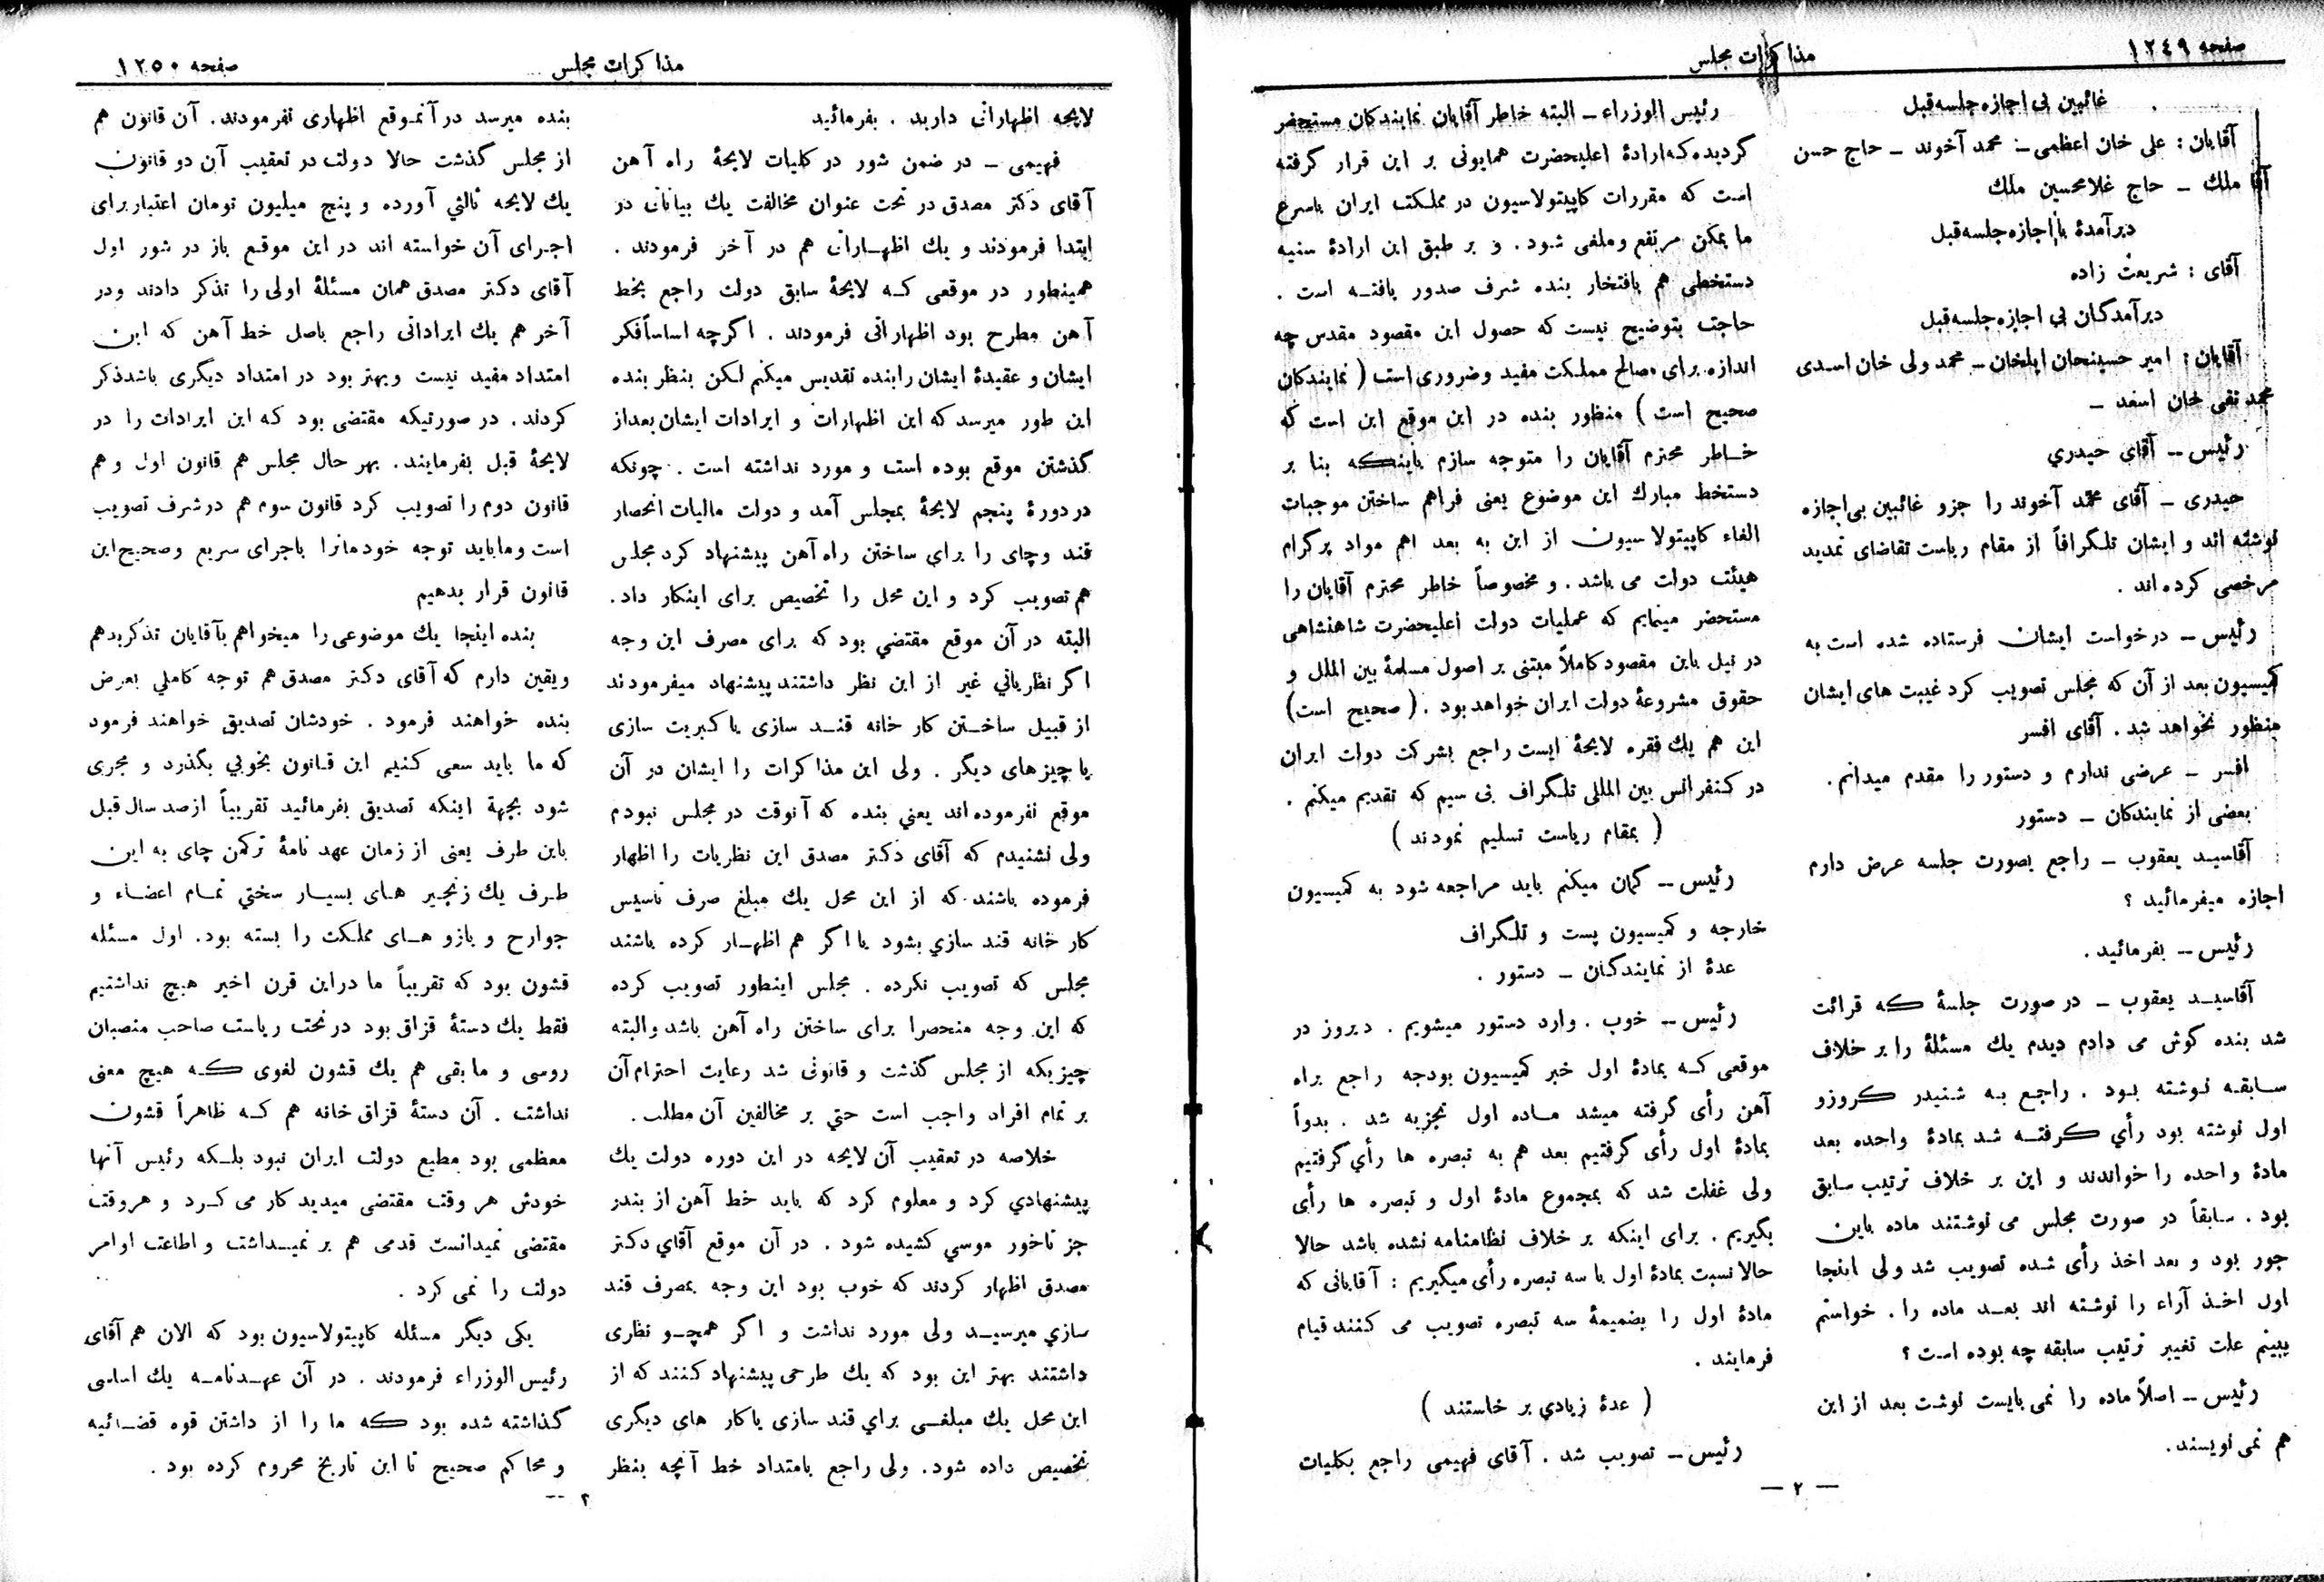 صفحه ۱۲٤۹
مذاکرات مجلس
غائبین بی اجازه جلسه قبل
آقایان : علی خان اعظمی – محمد آخوند – حاج حسن
آقا ملك – حاج غلامحسین ملك
دیر آمدۀ با اجازه جلسه قبل
آقای : شریعت زاده
دیر آمدگان بی اجازه جلسه قبل
آقایان : امیر حسینخان ایلخان – محمد ولی خان اسدی
محمد تقی خان اسعد –
رئیس – آقای حیدري
حیدری – آقای محمد آخوند را جزو غائبین بی اجازه
نوشته اند و ایشان تلگرافاً از مقام ریاست تقاضای تمدید
مرخصی کرده اند .
رئیس – درخواست ایشان فرستاده شده است به
کمیسیون بعد از آن که مجلس تصویب کرد غیبت های ایشان
منظور نخواهد شد . آقای افسر
افسر – عرضی ندارم و دستور را مقدم میدانم .
بعضی از نمایندگان – دستور
آقاسید یعقوب – راجع بصورت جلسه عرض دارم
اجازه میفرمائید ؟
رئیس – بفرمائید .
آقاسید یعقوب – در صورت جلسۀ که قرائت
شد بنده گوش می دادم دیدم یك مسئلۀ را بر خلاف
سابقه نوشته بود . راجع به شنیدر کروزو
اول نوشته بود رأي گرفته شد بمادۀ واحده بعد
مادۀ واحده را خواندند و این بر خلاف ترتیب سابق
بود . سابقاً در صورت مجلس می نوشتند ماده باین
جور بود و بعد اخذ رأی شده تصویب شد ولی اینجا
اول اخذ آراء را نوشته اند بعد ماده را . خواستم
ببینم علت تغییر ترتیب سابقه چه بوده است ؟
رئیس – اصلاً ماده را نمی بایست نوشت بعد از این
هم نمی نویسند .
رئیس الوزراء – البته خاطر آقایان نمایندگان مستحضر
گردیده که ارادۀ اعلیحضرت همایونی بر این قرار گرفته
است که مقررات کاپیتولاسیون در مملکت ایران باسرع
ما یمکن مرتفع و ملغی شود . و بر طبق این ارادۀ سنیه
دستخطی هم بافتخار بنده شرف صدور یافته است .
حاجت بتوضیح نیست که حصول این مقصود مقدس چه
اندازه برای مصالح مملکت مفید و ضروری است ( نمایندگان
صحیح است ) منظور بنده در این موقع این است که
خاطر محترم آقایان را متوجه سازم باینکه بنا بر
دستخط مبارك این موضوع یعنی فراهم ساختن موجبات
الغاء کاپیتولاسیون از این به بعد اهم مواد پرگرام
هیئت دولت می باشد . و مخصوصاً خاطر محترم آقایان را
مستحضر مینمایم که عملیات دولت اعلیحضرت شاهنشاهی
در نیل باین مقصود کاملاً مبتنی بر اصول مسلمۀ بین الملل و
حقوق مشروعۀ دولت ایران خواهد بود . ( صحیح است )
این هم یك فقره لایحۀ ایست راجع بشرکت دولت ایران
در کنفرانس بین المللی تلگراف بی سیم که تقدیم میکنم .
( بمقام ریاست تسلیم نمودند )
رئیس – گمان میکنم باید مراجعه شود به کمیسیون
خارجه و کمیسیون پست و تلگراف
عدۀ از نمایندگان – دستور .
رئیس – خوب . وارد دستور میشویم . دیروز در
موقعی که بمادۀ اول خبر کمیسیون بودجه راجع براه
آهن رأی گرفته میشد ماده اول تجزیه شد . بدواً
بمادۀ اول رأی گرفتیم بعد هم به تبصره ها رأي گرفتیم
ولی غفلت شد که بمجموع مادۀ اول و تبصره ها رأی
بگیریم . برای اینکه بر خلاف نظامنامه نشده باشد حالا
حالا نسبت بمادۀ اول با سه تبصره رأی میگیریم : آقایانی که
مادۀ اول را بضمیمۀ سه تبصره تصویب می کنند قیام
فرمایند .
( عدۀ زیادي بر خاستند )
رئیس – تصویب شد . آقای فهیمی راجع بکلیات
— ۲ —
صفحه ۱۲۵۰
مذاکرات مجلس
لایحه اظهاراتی دارید . بفرمائید
فهیمی – در ضمن شور در کلیات لایحۀ راه آهن
آقای دکتر مصدق در تحت عنوان مخالفت یك بیاناتی در
ابتدا فرمودند و یك اظهاراتی هم در آخر فرمودند .
همینطور در موقعی که لایحۀ سابق دولت راجع بخط
آهن مطرح بود اظهاراتی فرمودند . اگرچه اساساً فکر
ایشان و عقیدۀ ایشان را بنده تقدیس میکنم لکن بنظر بنده
این طور میرسد که این اظهارات و ایرادات ایشان بعد از
گذشتن موقع بوده است و مورد نداشته است . چونکه
در دورۀ پنجم لایحۀ بمجلس آمد و دولت مالیات انحصار
قند و چای را برای ساختن راه آهن پیشنهاد کرد مجلس
هم تصویب کرد و این محل را تخصیص برای اینکار داد .
البته در آن موقع مقتضي بود که برای مصرف این وجه
اگر نظریاتي غیر از این نظر داشتند پیشنهاد میفرمودند
از قبیل ساختن کار خانه قند سازی یا کبریت سازی
یا چیز های دیگر . ولی این مذاکرات را ایشان در آن
موقع نفرموده اند یعني بنده که آنوقت در مجلس نبودم
ولی نشنیدم که آقای دکتر مصدق این نظریات را اظهار
فرموده باشند که از این محل یك مبلغ صرف تأسیس
کار خانه قند سازي بشود یا اگر هم اظهار کرده باشند
مجلس که تصویب نکرده . مجلس اینطور تصویب کرده
که این وجه منحصرا برای ساختن راه آهن باشد و البته
چیزیکه از مجلس گذشت و قانونی شد رعایت احترام آن
بر تمام افراد واجب است حتي بر مخالفین آن مطلب .
خلاصه در تعقیب آن لایحه در این دوره دولت یك
پیشنهادي کرد و معلوم کرد که باید خط آهن از بندر
جز تا خور موسي کشیده شود . در آن موقع آقاي دکتر
مصدق اظهار کردند که خوب بود این وجه بمصرف قند
سازي میرسید ولی مورد نداشت و اگر همچو نظری
داشتند بهتر این بود که یك طرحی پیشنهاد کنند که از
این محل یك مبلغی براي قند سازی یا کار های دیگری
تخصیص داده شود . ولی راجع بامتداد خط آنچه بنظر
بنده میرسد در آنموقع اظهاری نفرمودند . آن قانون هم
از مجلس گذشت حالا دولت در تعقیب آن دو قانون
یك لایحه ثالثي آورده و پنج میلیون تومان اعتبار برای
اجرای آن خواسته اند در این موقع باز در شور اول
آقای دکتر مصدق همان مسئلۀ اولی را تذکر دادند و در
آخر هم یك ایراداتی راجع باصل خط آهن که این
امتداد مفید نیست و بهتر بود در امتداد دیگری باشد ذکر
کردند . در صورتیکه مقتضی بود که این ایرادات را در
لایحۀ قبل بفرمایند . بهر حال مجلس هم قانون اول و هم
قانون دوم را تصویب کرد قانون سوم هم در شرف تصویب
است و ما باید توجه خودمانرا باجرای سریع و صحیح این
قانون قرار بدهیم
بنده اینجا یك موضوعی را میخواهم بآقایان تذکر بدهم
و یقین دارم که آقای دکتر مصدق هم توجه کاملي بعرض
بنده خواهند فرمود . خودشان تصدیق خواهند فرمود
که ما باید سعی کنیم این قانون بخوبي بگذرد و مجری
شود بجهة اینکه تصدیق بفرمائید تقریباً از صد سال قبل
باین طرف یعنی از زمان عهد نامۀ ترکمن چای به این
طرف یك زنجیر های بسیار سختي تمام اعضاء و
جوارح و بازو های مملکت را بسته بود . اول مسئله
قشون بود که تقریباً ما در این قرن اخیر هیچ نداشتیم
فقط یك دستۀ قزاق بود در تحت ریاست صاحب منصبان
روسی و ما بقی هم یك قشون لغوی که هیچ معنی
نداشت . آن دستۀ قزاق خانه هم که ظاهراً قشون
معظمی بود مطیع دولت ایران نبود بلکه رئیس آنها
خودش هر وقت مقتضی میدید کار می کرد و هر وقت
مقتضی نمیدانست قدمی هم بر نمیداشت و اطاعت اوامر
دولت را نمی کرد .
یکی دیگر مسئله کاپیتولاسیون بود که الان هم آقای
رئیس الوزراء فرمودند . در آن عهدنامه یك اساسی
گذاشته شده بود که ما را از داشتن قوه قضائیه
و محاکم صحیح تا این تاریخ محروم کرده بود .
۲ —